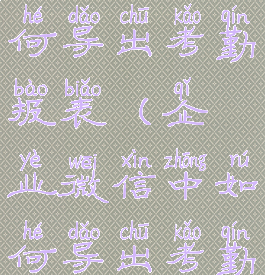 hé dǎo chū kǎo qín
何导出考勤
bào biǎo qǐ
报表（企
yè wēi xìn zhōng rú
业微信中如
hé dǎo chū kǎo qín
何导出考勤